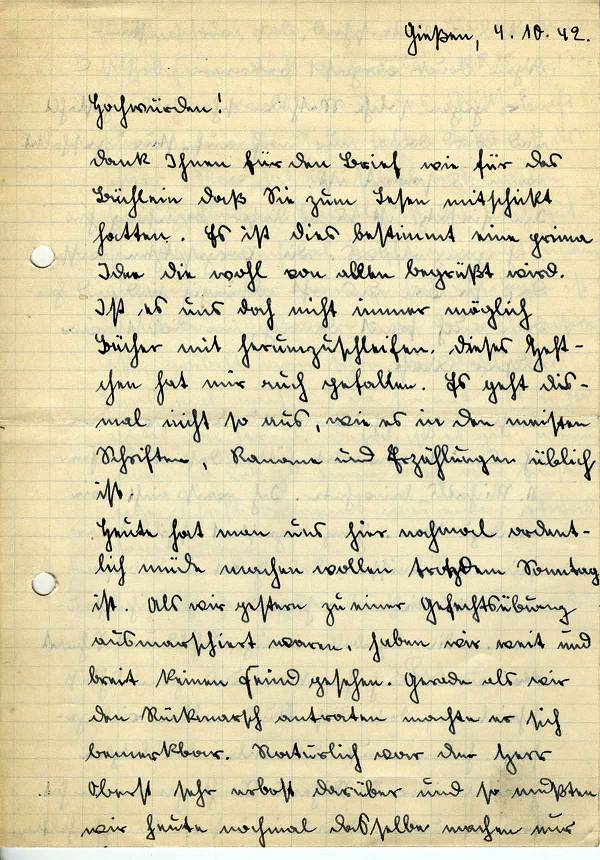 Gießen, 4.10.42.
Hochwürden!
Dank Ihnen für den Brief, wie für das
Büchlein daß Sie zum Lesen mitschickt
hatten. Es ist dies bestimmt eine prima
Idee die wohl von allen begrüßt wird.
Ist es uns doch nicht immer möglich
Bücher mit herumzuschleifen. Dieses Heft-
chen hat mir auch gefallen. Es geht dies-
mal nicht so aus, wie es in den meisten
Schriften, Romane und Erzählungen üblich
ist.
Heute hat man uns hier nochmal ordent-
lich müde machen wollen trotzdem Sonntag
ist. Als wir gestern zu einer Gefechtsübung
ausmarschiert waren, haben wir weit und
breit keinen Feind gesehen. Gerade als wir
den Rückmarsch antraten machte er sich
bemerkbar. Natürlich war der Herr
Oberst sehr erbost darüber und so mußten
wir heute nochmal dasselbe machen nur